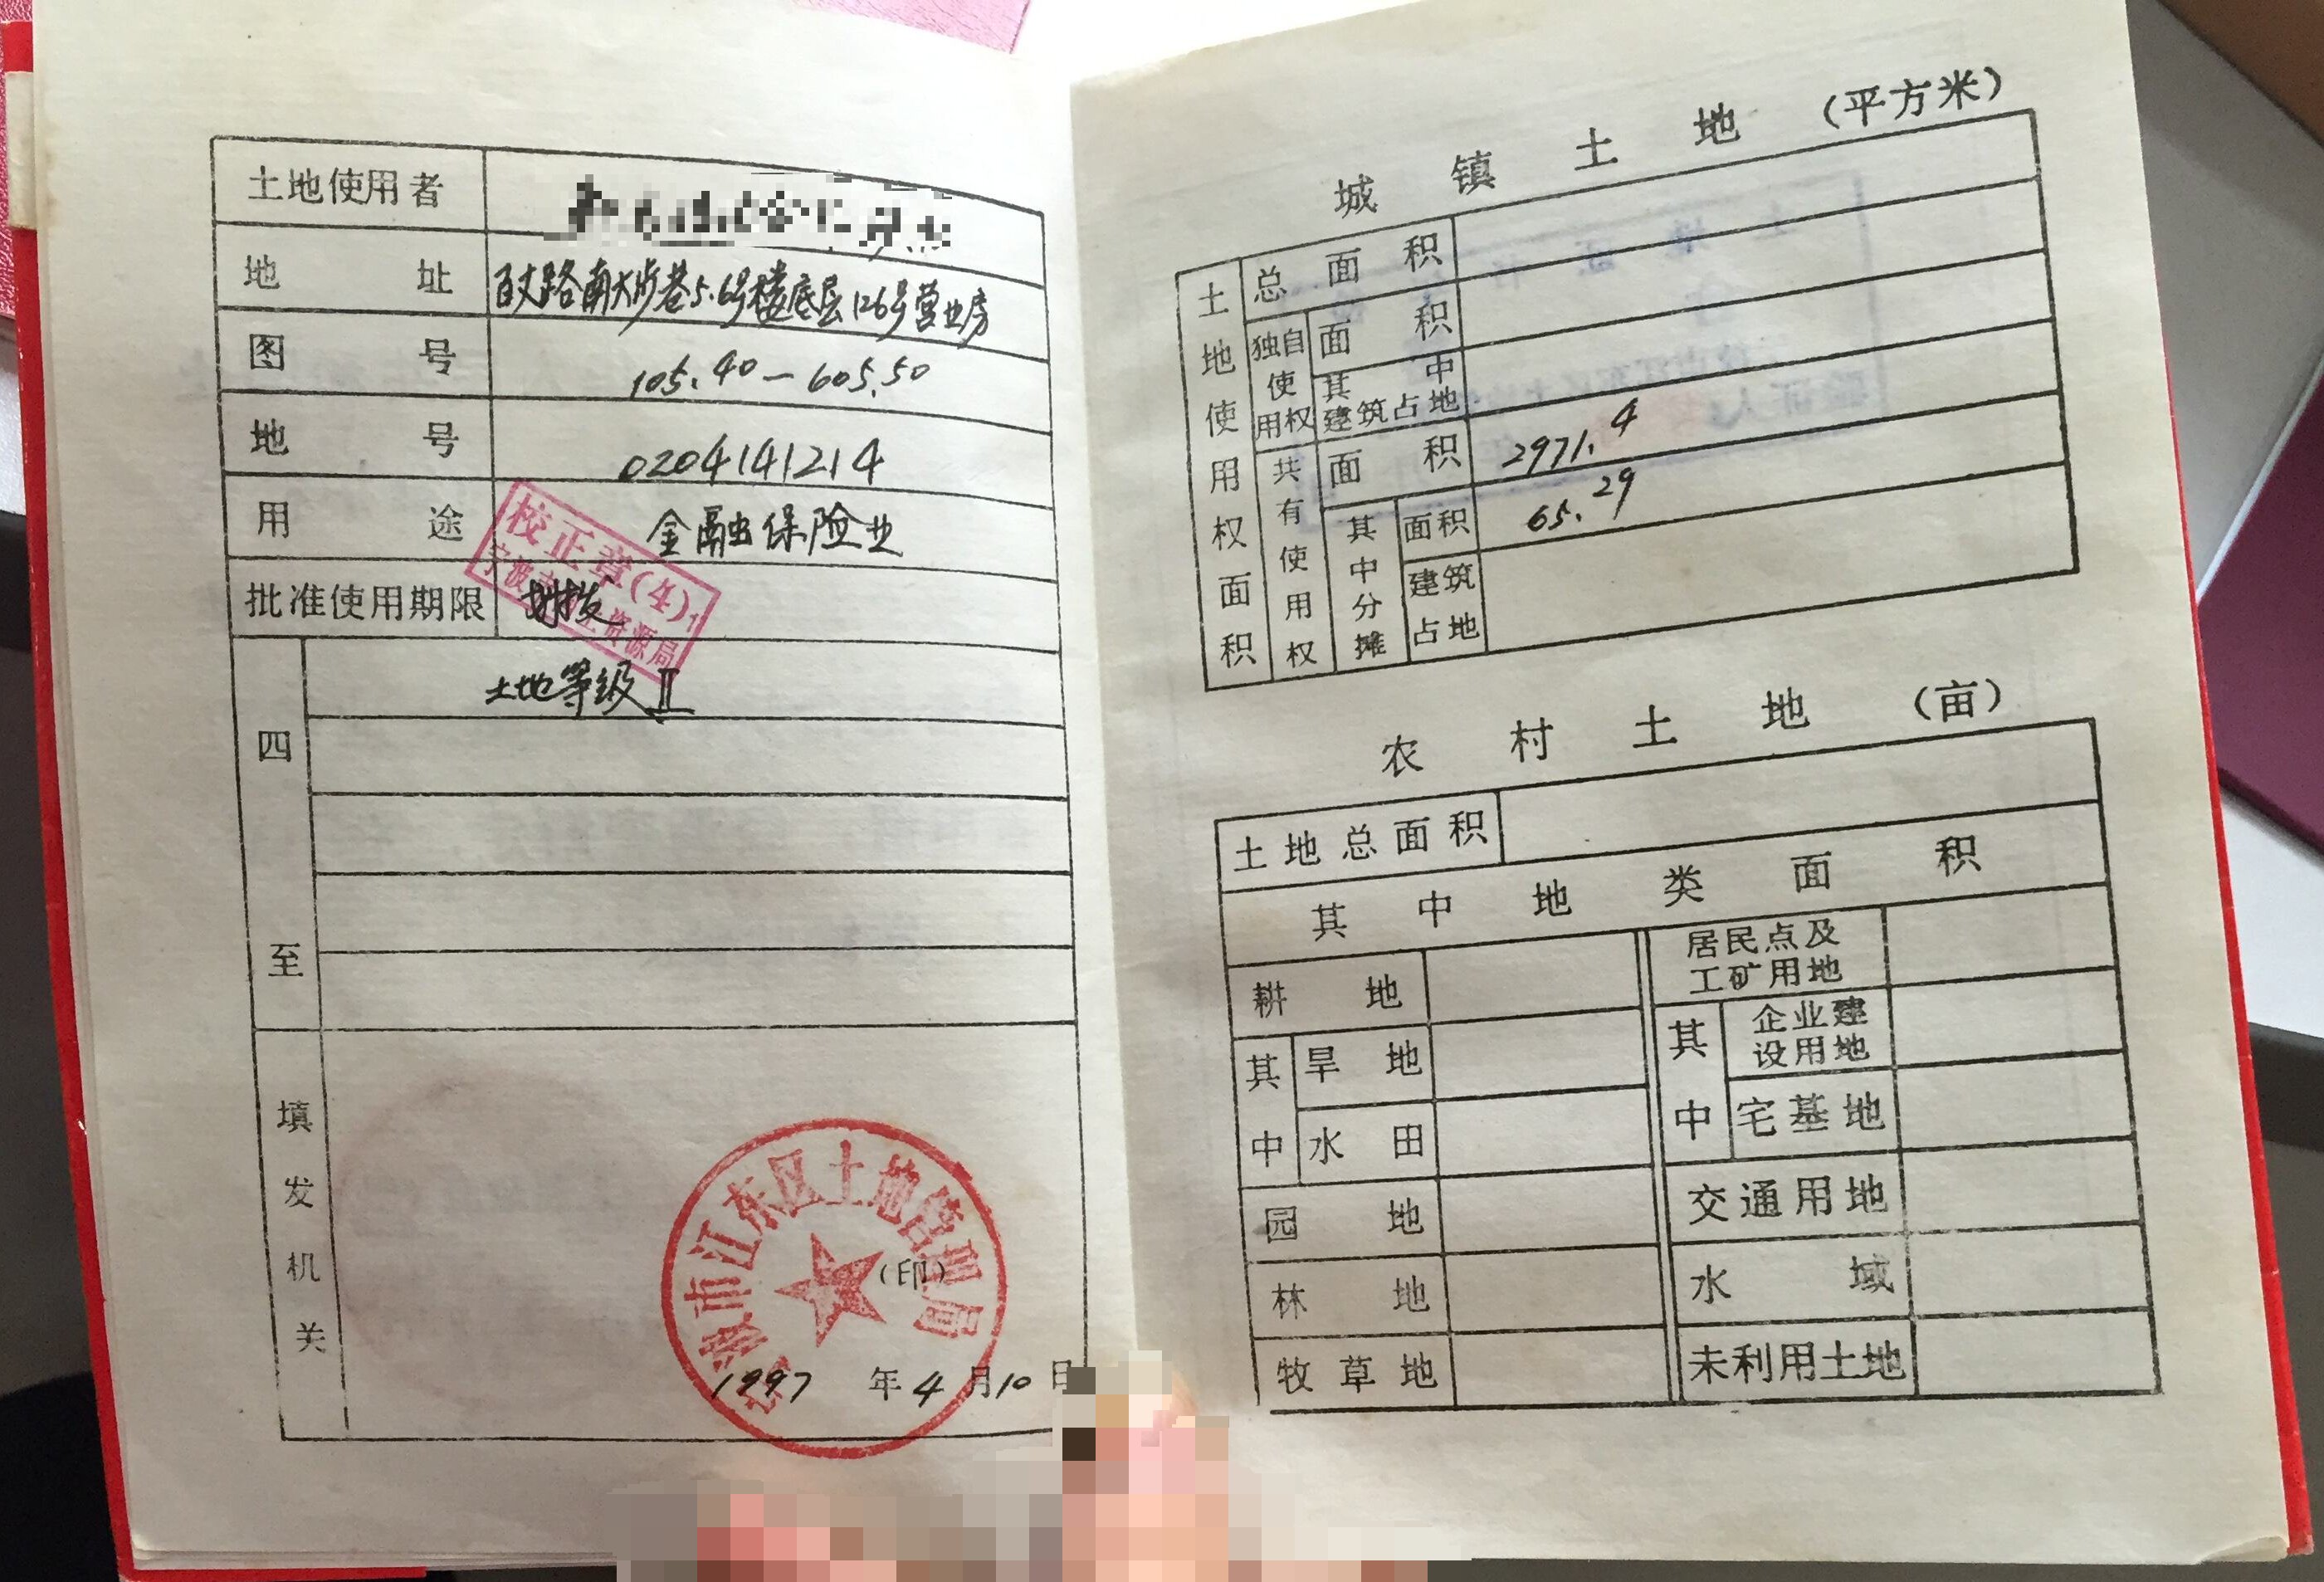 土地使用者
地址 百丈路南大步巷5.6号楼底层126号营业房
图号 105.40—605.50
地号 0204141214
用途 金融保险业
批准使用期限 划拨
校正章(4)
土资源局
四至
土地等级Ⅱ
填发机关
宁波市江东区土地管理局
(印)
1997年4月10日
城镇土地 (平方米)
土地使用权面积
总面积
独自使用权
面积
其中建筑占地
共有使用权
面积 2971.4
其中分摊
面积 65.29
建筑占地
农村土地 (亩)
土地总面积
其中地类面积
耕地
其中
旱地
水田
园地
林地
牧草地
居民点及工矿用地
其中
企业建设用地
宅基地
交通用地
水域
未利用土地